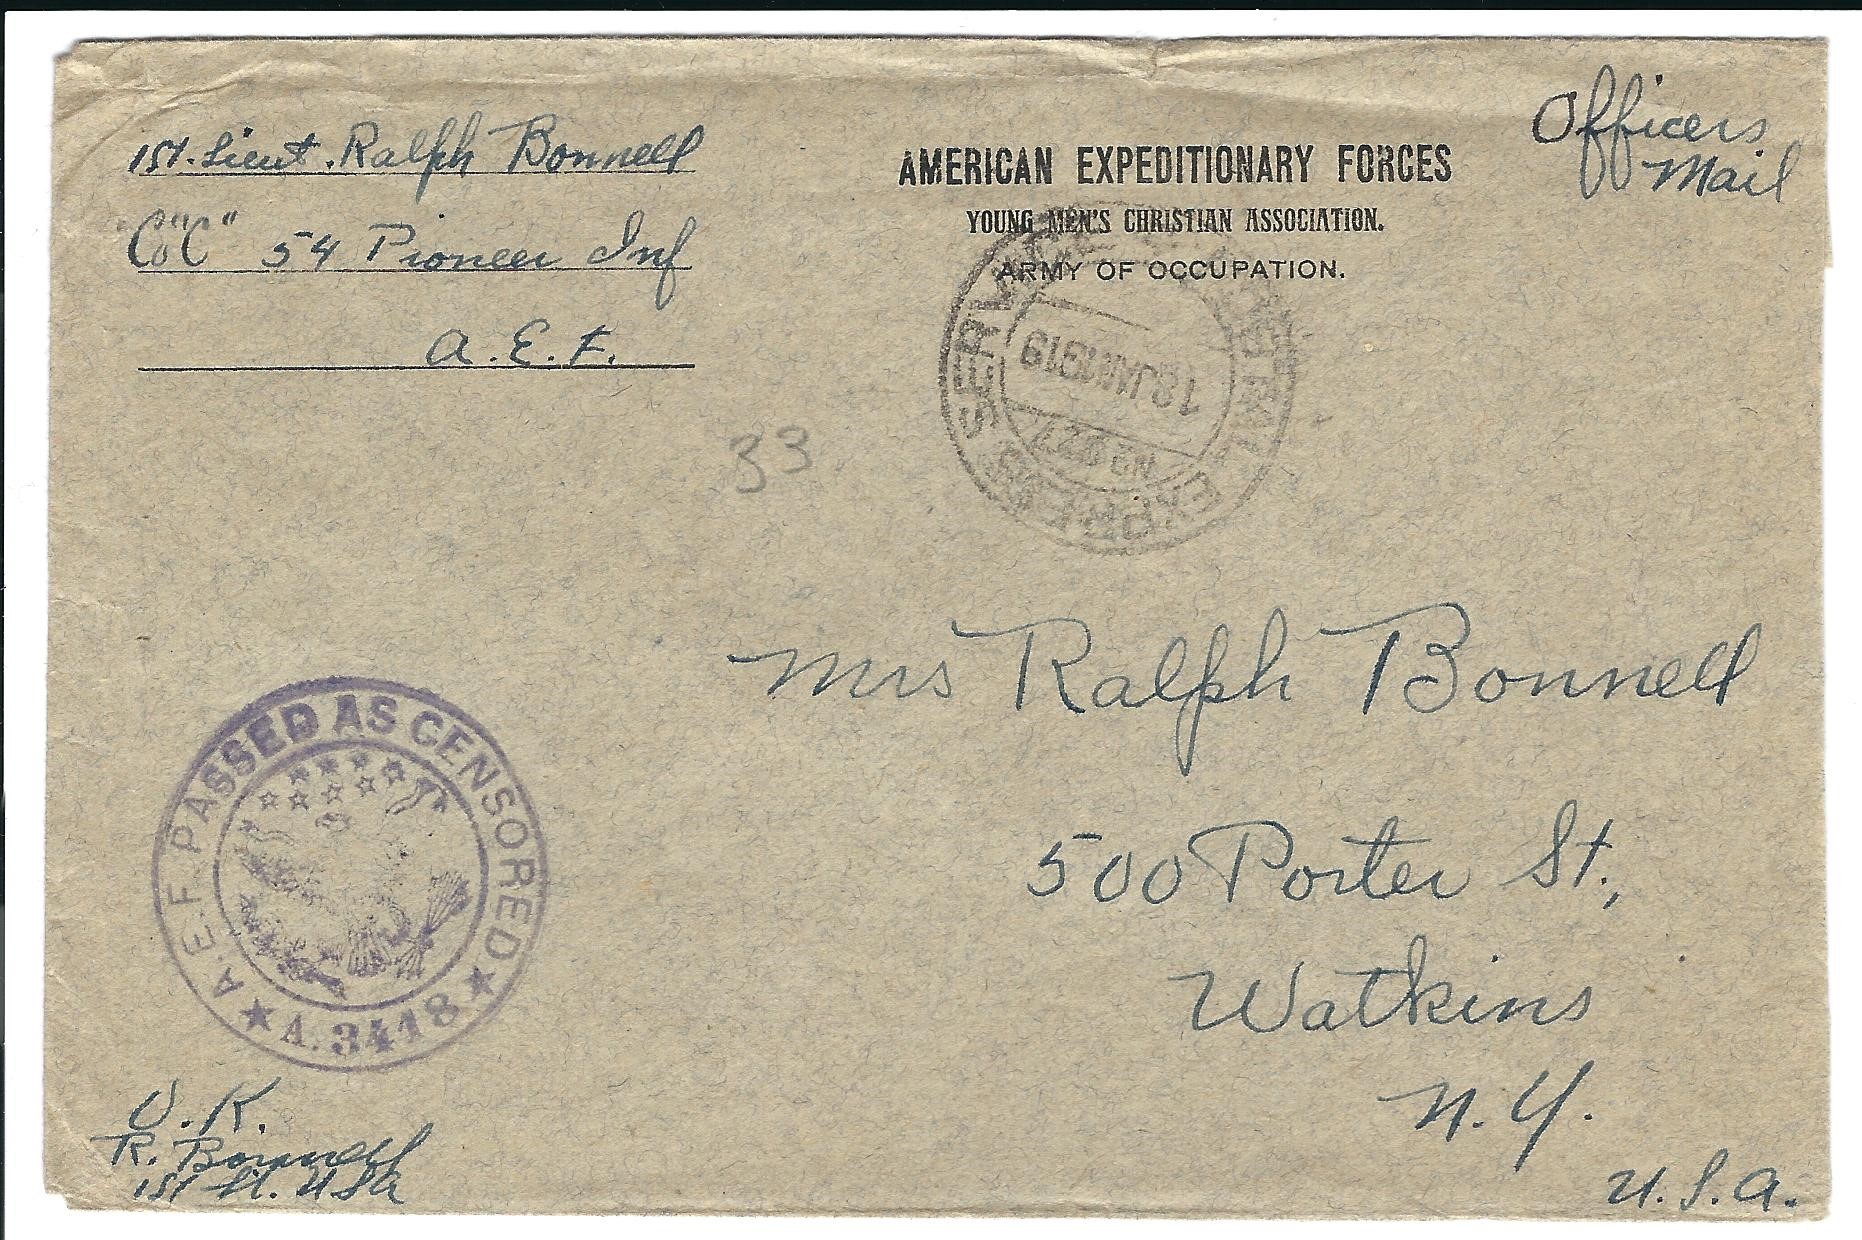 1st. Lieut. Ralph Bonnell
Co "C" 54 Pioneer Inf
A. E. F.
AMERICAN EXPEDITIONARY FORCES
YOUNG MEN'S CHRISTIAN ASSOCIATION.
ARMY OF OCCUPATION.
Officers
Mail
EXPRESS SERVICE
18 JAN 1919
33
Mrs Ralph Bonnell
500 Porter St.,
Watkins
N. Y.
U. S. A.
A.E.F. PASSED AS CENSORED
A. 3418
O. K.
R. Bonnell
1st Lt. USA